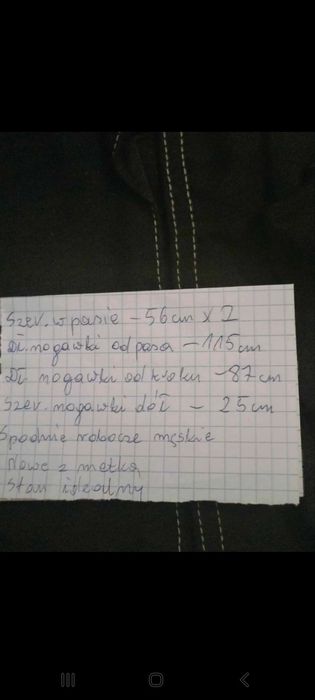 Szer. w pasie - 56cm x 2
Dł. nogawki od pasa - 115cm
Dł nogawki od kroku - 87cm
Szer. nogawki dół - 25cm
Spodnie robocze męskie
Nowe z metką
Stan idealny